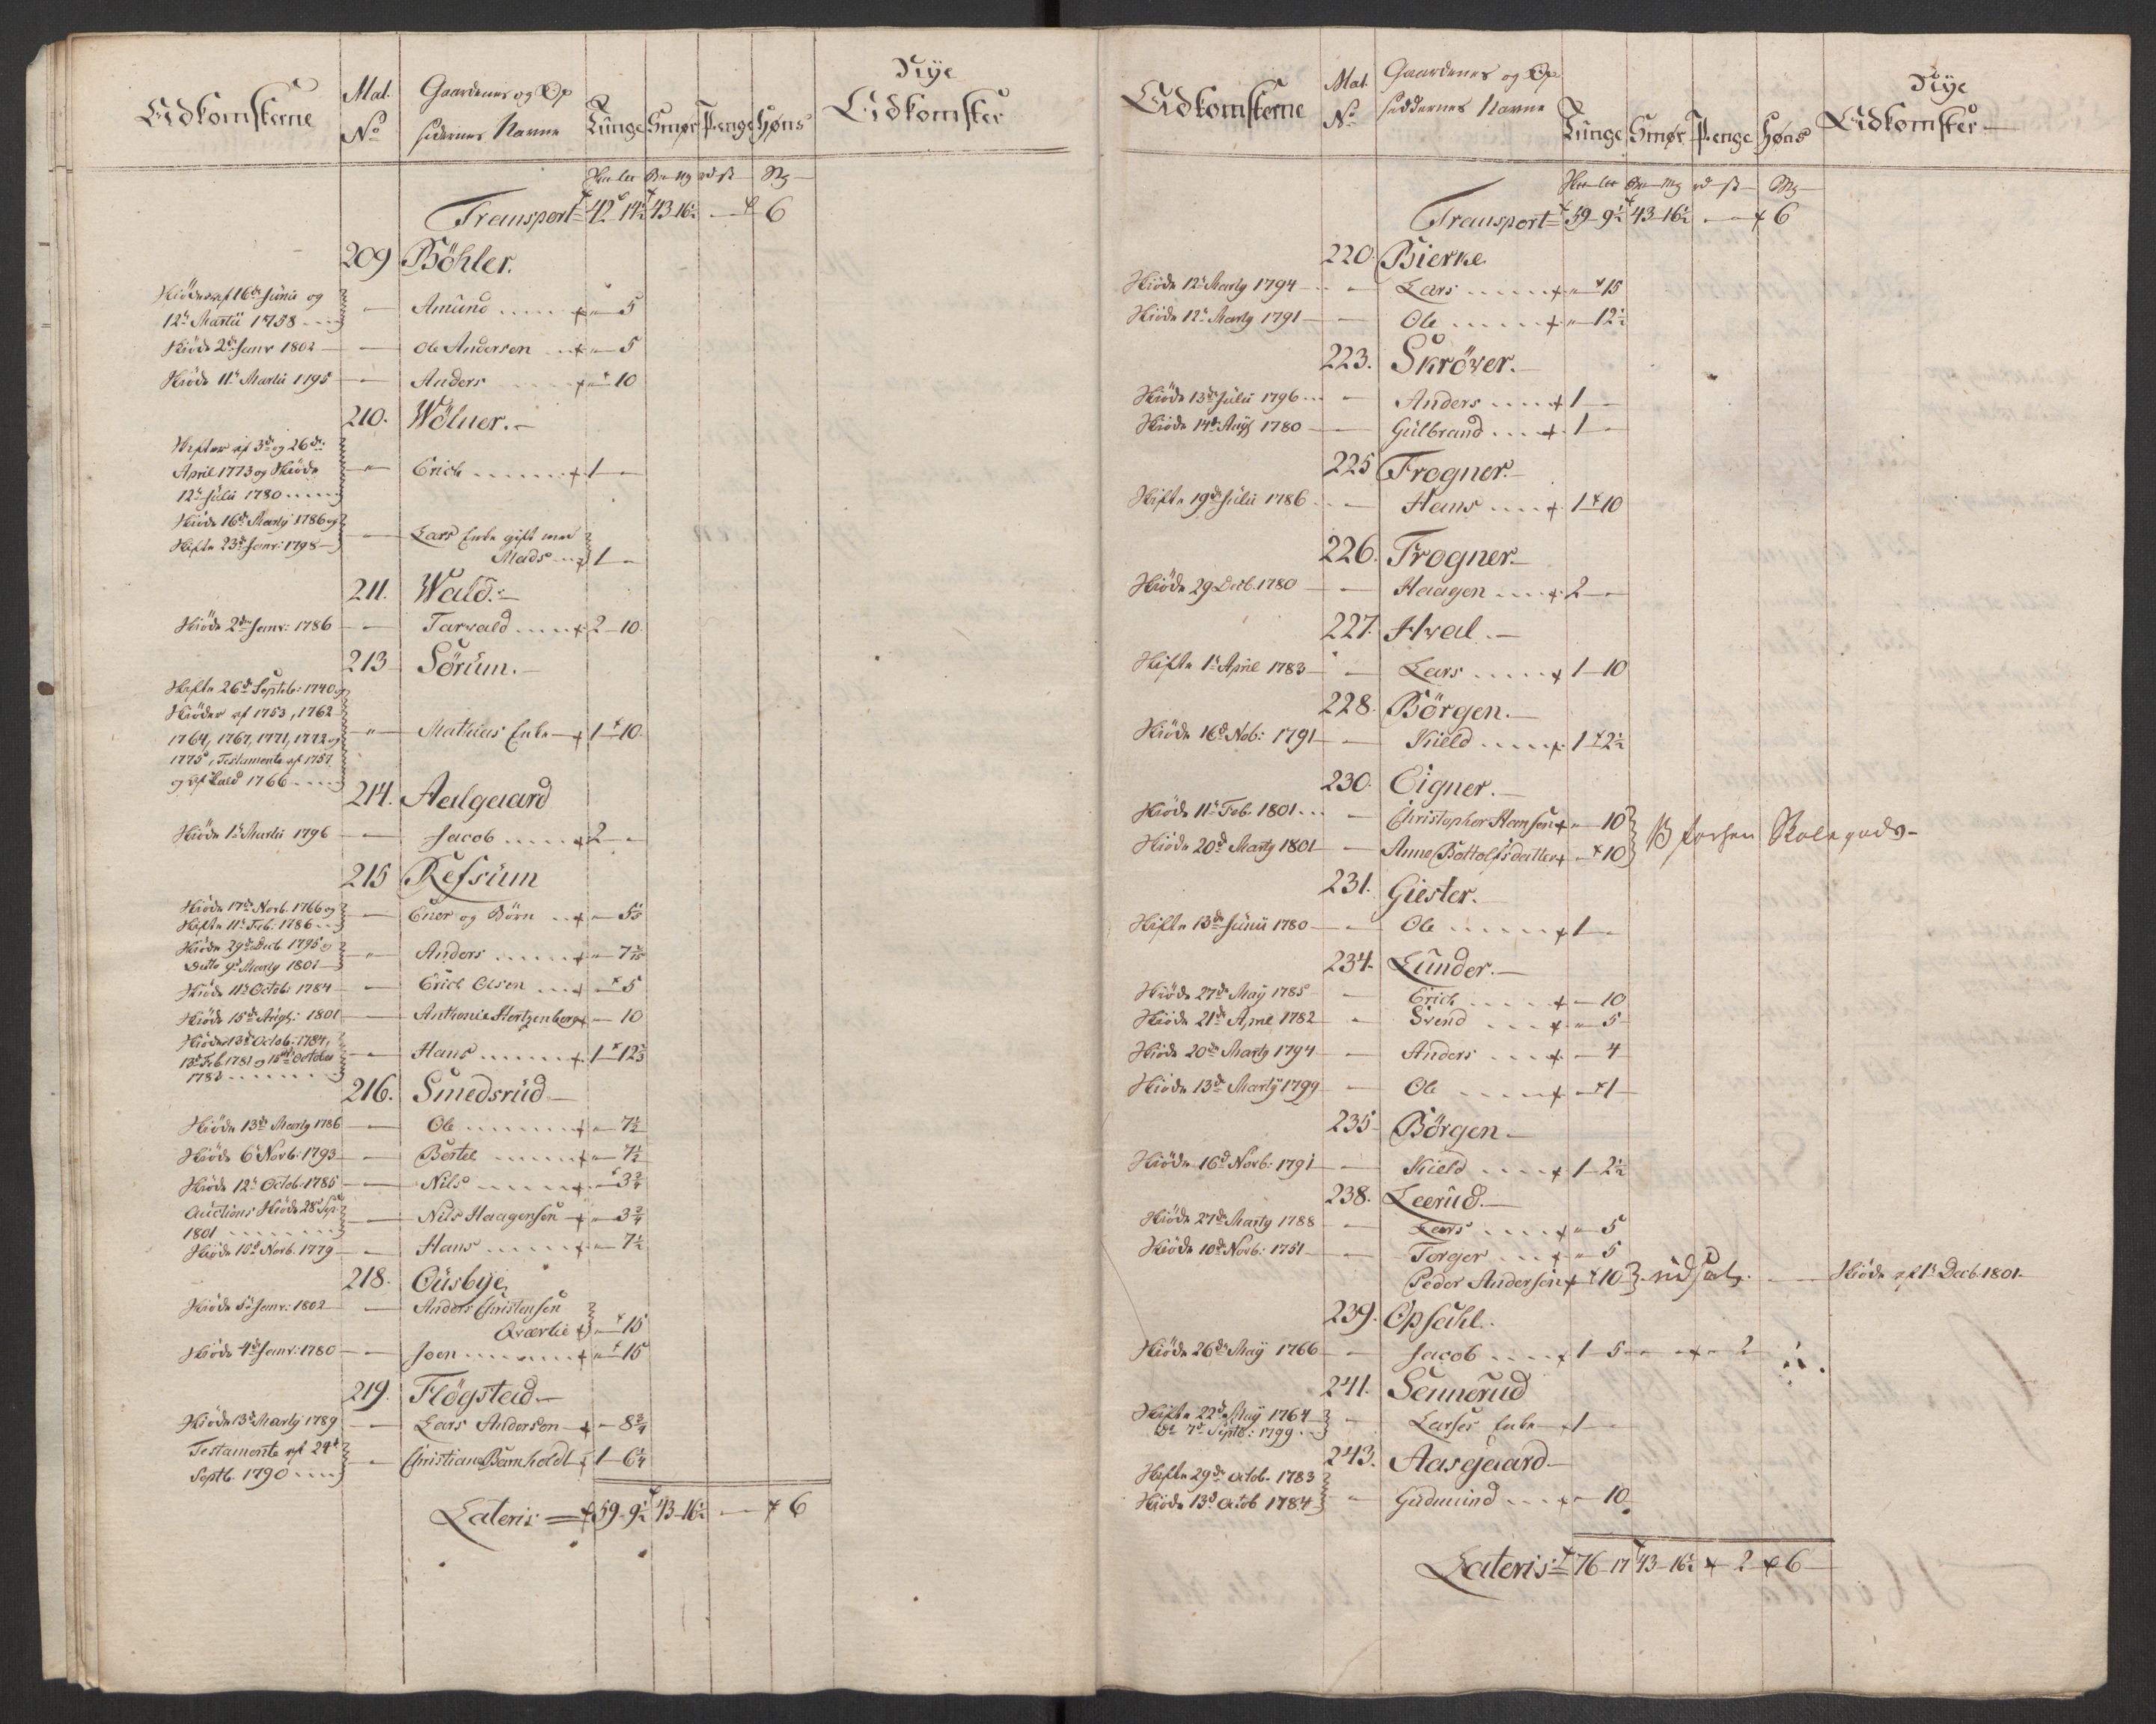 Adkomsterne
Mat. No
Gaardenes og Op
sidernes Navne
Tunge Smør Penge Høns
Nye
Adkomster
Transport 42 14½ 43-16½ — 6
209 Böhler.
Kiöder af 16de Junii og
12te Martii 1758
Amund 5
Kiöde 2den Janr 1802 — Ole Andersen 5
Kiöde 11te Martii 1795 — Anders 10
210. Wölner.
Skifter af 3de og 26de
April 1773 og Kiöde
12te Julii 1780
Erich 1 —
Kiöde 16de Marty 1786 og
Skifte 23de Janr: 1798
Lars Enke gift med
Mads 1 —
211. Wald.
Kiöde 2den Janr: 1786 — Tarvald 2-10
213 Sörum.
Skifte 26de Septeb: 1740 og
Kiöder af 1753, 1762
1764, 1767, 1771, 1772 og
1775, Testamente af 1757
og af Kald 1766
Mathias Enke 1-10
214. Aalgaard
Kiöde 1te Martii 1796 — Jacob 2 —
215 Refsum
Kiöde 17de Novb. 1766 og
Skifte 11te Feb. 1786
Ener og Börn
Kiöde 29de Decb 1795 og
Ditto 9de Marty 1801
Anders
Kiöde 11te Octob: 1784 — Erich Olsen 5
Kiöde 15de Augs: 1801 — Anthonie Hertzenberg 10
Kiöder 13de Octob: 1784,
13de Feb 1781 og 15de October
1783
Hans
216. Smedsrud
Kiöde 13de Marty 1786 — Ole 7½
Kiöde 6te Novb: 1793 — Bertel 7½
Kiöde 12te Octob: 1785 — Nils 3¾
Auctions Kiöde 28de Sept
1801
Nils Haagensen 3¾
Kiöde 10de Novb. 1779 — Hans 7½
218. Ousbye
Kiöde 5te Janr: 1802 — Anders Christensen
Qværlie 15
Kiöde 4de Janr: 1780 — Joen 15
219. Flögstad
Kiöde 13de Marty 1789 — Lars Andersen 8¾
Testamente af 24de
Septb. 1790
Christian Bamholdt 1-6¼
Lateris 59-9½ 43-16½ — 6
Adkomsterne
Mat. No
Gaardenes og Op
siddernes Navne
Tunge Smør Penge Høns
Nye
Adkomster
Transport 59-9½ 43-16½ — 6
220. Bierke
Kiöde 12te Marty 1794 — Lars 15
Kiöde 12te Marty 1791 — Ole 12½
223. Skröver.
Kiöde 13de Julii 1796 — Anders 1 —
Kiöde 14de Augs 1780 — Gulbrand 1 —
225 Frogner
Skifte 19de Julii 1786 — Hans 1-10
226. Frogner
Kiöde 29 Decb. 1780 — Haagen 2 —
227. Hval
Skifte 1te April 1783 — Lars 1-10
228. Börgen.
Kiöde 16de Nob: 1791 — Kield 1-2½
230. Eigner.
Kiöde 11te Feb. 1801 — Christopher Hansen 10
Kiöde 20de Marty 1801 — Anne Bottolfsdatter 10
Skolegods
231. Giester.
Skifte 13de Junii 1780 — Ole 1 —
234. Lunder.
Kiöde 27de May 1785 — Erich 10
Kiöde 21de April 1782 — Svend 5
Kiöde 20de Marty 1794 — Anders 4
Kiöde 13de Marty 1799 — Ole 1
235 Börgen
Kiöde 16de Novb: 1791 — Kield 1-2½
238. Leerud.
Kiöde 27de Marty 1788 — Lars 5
Kiöde 10de Novb: 1751 — Torger 5
Peder Andersen 10 udsat — Kiöde af 1te Decb. 1801.
239. Opsahl.
Kiöde 26de May 1766 — Jacob 1-5 — 2
241. Sennerud
Skifte 22de May 1764
7de Septb: 1799
Larses Enke 1 —
243. Aasgaard
Skifte 29de Octob. 1783
Kiöde 13de Octob 1784
Gudmund 10
Lateris 76-17 43-16½ 2 6